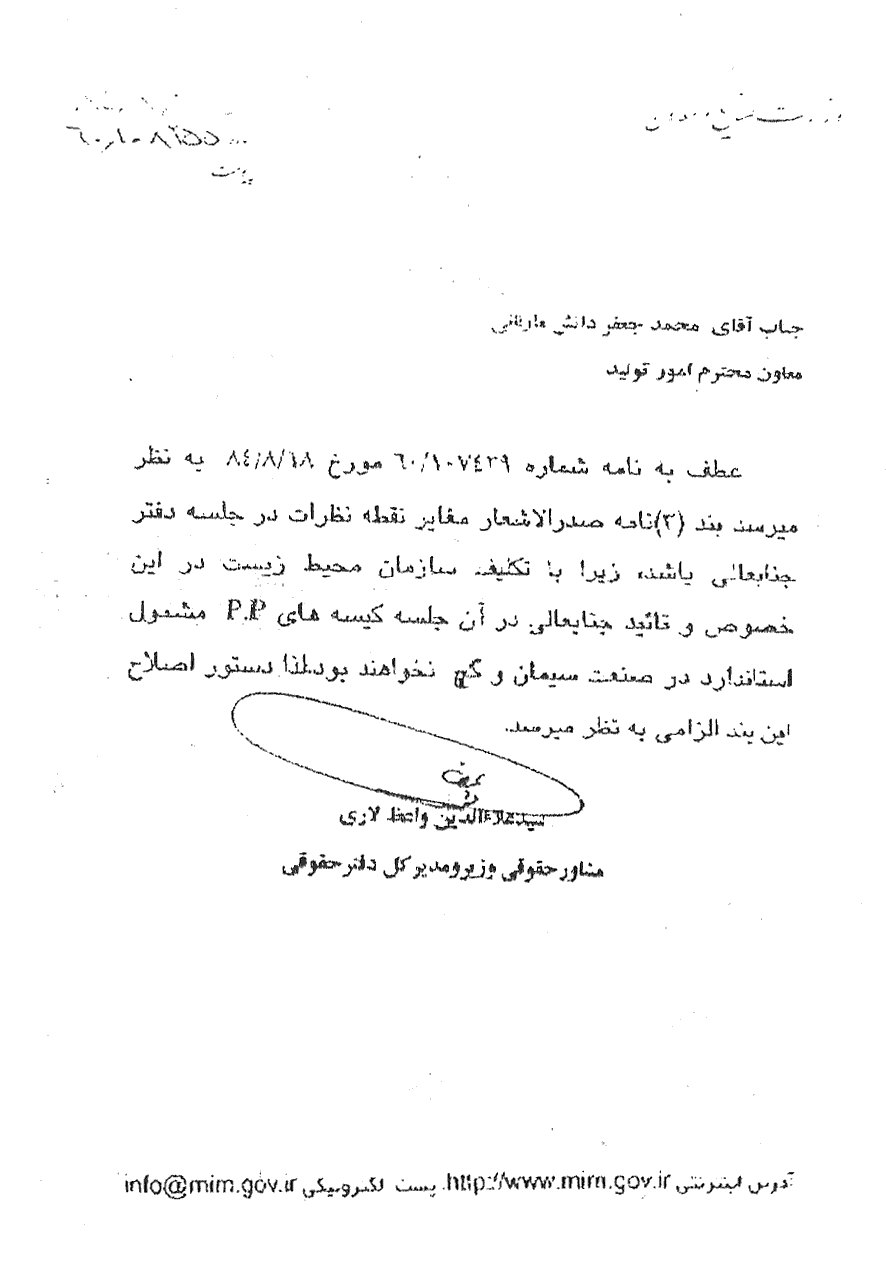 وزارت صنایع و معادن
پیوست
جناب آقای محمد جعفر دانش
معاون محترم امور تولید
عطف به نامه شماره ٦٠/١٠٧٤٣٩ مورخ ٨٤/٨/١٨ به نظر
میرسد بند (٣)نامه صدرالاشعار مغایر نقطه نظرات در جلسه دفتر
جنابعالی باشد، زیرا با تکلیف سازمان محیط زیست در این
خصوص و تائید جنابعالی در آن جلسه کیسه های P.P مشمول
استاندارد در صنعت سیمان و گچ نخواهند بود.لذا دستور اصلاح
این بند الزامی به نظر میرسد.
سیدعلاءالدین واعظ لاری
مشاور حقوقی وزیر و مدیر کل دفتر حقوقی
آدرس اینترنتی http://www.mim.gov.ir پست الکترونیکی info@mim.gov.ir